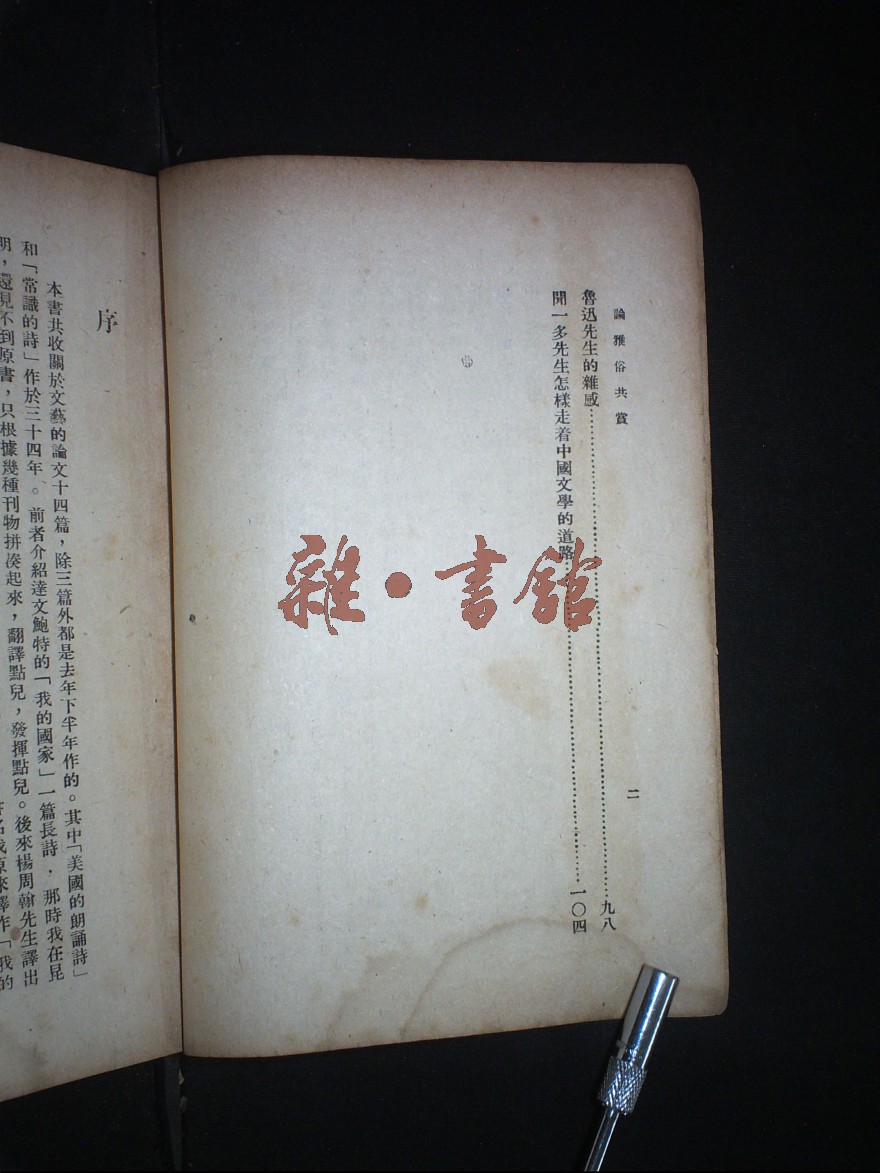 論雅俗共賞
二
魯迅先生的雜感……………………九八
聞一多先生怎樣走着中國文學的道路……………………一〇四
雜·書館
序
本書共收關於文藝的論文十四篇，除三篇外都是去年下半年作的。其中「美國的朗誦詩」
和「常識的詩」作於三十四年。前者介紹達文鮑特的「我的國家」一篇長詩，那時我在昆
明，還見不到原書，只根據幾種刊物拼湊起來，翻譯點兒，發揮點兒。後來楊周翰先生譯出
我原來譯作「我的